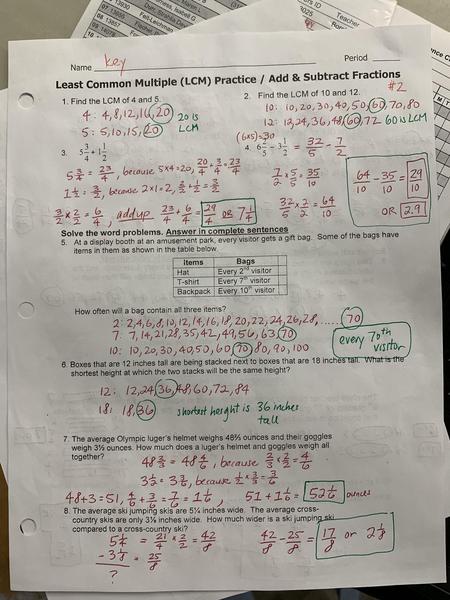 Name key Period
Least Common Multiple (LCM) Practice / Add & Subtract Fractions
1. Find the LCM of 4 and 5.
4: 4, 8, 12, 16, 20
5: 5, 10, 15, 20
20 is LCM
2. Find the LCM of 10 and 12. #2
10: 10, 20, 30, 40, 50, 60, 70, 80
12: 12, 24, 36, 48, 60, 72 60 is LCM
3. 5 3/4 + 1 1/2
5 3/4 = 23/4, because 5×4=20, 20/4 + 3/4 = 23/4
1 1/2 = 3/2, because 2×1=2, 2/2 + 1/2 = 3/2
3/2 × 2/2 = 6/4, add up 23/4 + 6/4 = 29/4 OR 7 1/4
(6×5)=30
4. 6 2/5 - 3 1/2 = 32/5 - 7/2
7/2 × 5/5 = 35/10
32/5 × 2/2 = 64/10
64/10 - 35/10 = 29/10
OR 2.9
Solve the word problems. Answer in complete sentences
5. At a display booth at an amusement park, every visitor gets a gift bag. Some of the bags have
items in them as shown in the table below.
Items Bags
Hat Every 2nd visitor
T-shirt Every 7th visitor
Backpack Every 10th visitor
How often will a bag contain all three items?
2: 2, 4, 6, 8, 10, 12, 14, 16, 18, 20, 22, 24, 26, 28, ...... 70
7: 7, 14, 21, 28, 35, 42, 49, 56, 63, 70
10: 10, 20, 30, 40, 50, 60, 70, 80, 90, 100
every 70th visitor
6. Boxes that are 12 inches tall are being stacked next to boxes that are 18 inches tall. What is the
shortest height at which the two stacks will be the same height?
12: 12, 24, 36, 48, 60, 72, 84
18: 18, 36 shortest height is 36 inches
tall
7. The average Olympic luger's helmet weighs 48⅔ ounces and their goggles
weigh 3½ ounces. How much does a luger's helmet and goggles weigh all
together?
48 2/3 = 48 4/6, because 2/3 × 2/2 = 4/6
3 1/2 = 3 3/6, because 1/2 × 3/3 = 3/6
48+3=51, 4/6 + 3/6 = 7/6 = 1 1/6, 51 + 1 1/6 = 52 1/6 ounces
8. The average ski jumping skis are 5¼ inches wide. The average cross-
country skis are only 3⅛ inches wide. How much wider is a ski jumping ski
compared to a cross-country ski?
5 1/4 = 21/4 × 2/2 = 42/8
- 3 1/8 = 25/8
?
42/8 - 25/8 = 17/8 or 2 1/8